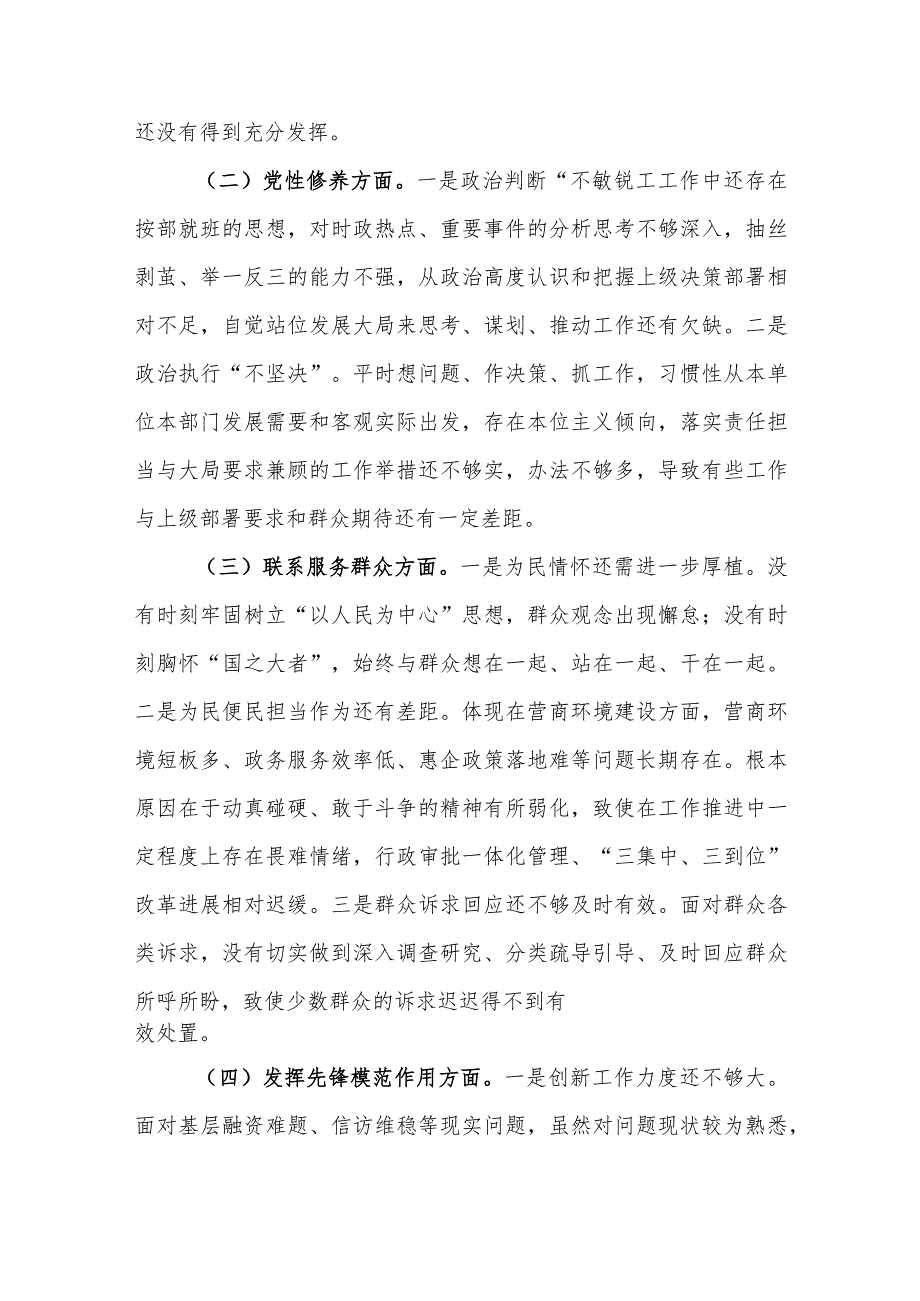 还没有得到充分发挥。
（二）党性修养方面。一是政治判断“不敏锐工工作中还存在
按部就班的思想，对时政热点、重要事件的分析思考不够深入，抽丝
剥茧、举一反三的能力不强，从政治高度认识和把握上级决策部署相
对不足，自觉站位发展大局来思考、谋划、推动工作还有欠缺。二是
政治执行“不坚决”。平时想问题、作决策、抓工作，习惯性从本单
位本部门发展需要和客观实际出发，存在本位主义倾向，落实责任担
当与大局要求兼顾的工作举措还不够实，办法不够多，导致有些工作
与上级部署要求和群众期待还有一定差距。
（三）联系服务群众方面。一是为民情怀还需进一步厚植。没
有时刻牢固树立“以人民为中心”思想，群众观念出现懈怠；没有时
刻胸怀“国之大者”，始终与群众想在一起、站在一起、干在一起。
二是为民便民担当作为还有差距。体现在营商环境建设方面，营商环
境短板多、政务服务效率低、惠企政策落地难等问题长期存在。根本
原因在于动真碰硬、敢于斗争的精神有所弱化，致使在工作推进中一
定程度上存在畏难情绪，行政审批一体化管理、“三集中、三到位”
改革进展相对迟缓。三是群众诉求回应还不够及时有效。面对群众各
类诉求，没有切实做到深入调查研究、分类疏导引导、及时回应群众
所呼所盼，致使少数群众的诉求迟迟得不到有
效处置。
（四）发挥先锋模范作用方面。一是创新工作力度还不够大。
面对基层融资难题、信访维稳等现实问题，虽然对问题现状较为熟悉，